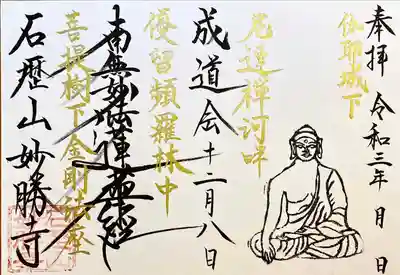 奉拝 令和三年 月 日
伽耶城下
尼連禅河畔
成道会 十二月八日
優留頻羅林中
南無妙法蓮華経
菩提樹下金剛法座
石歴山妙勝寺